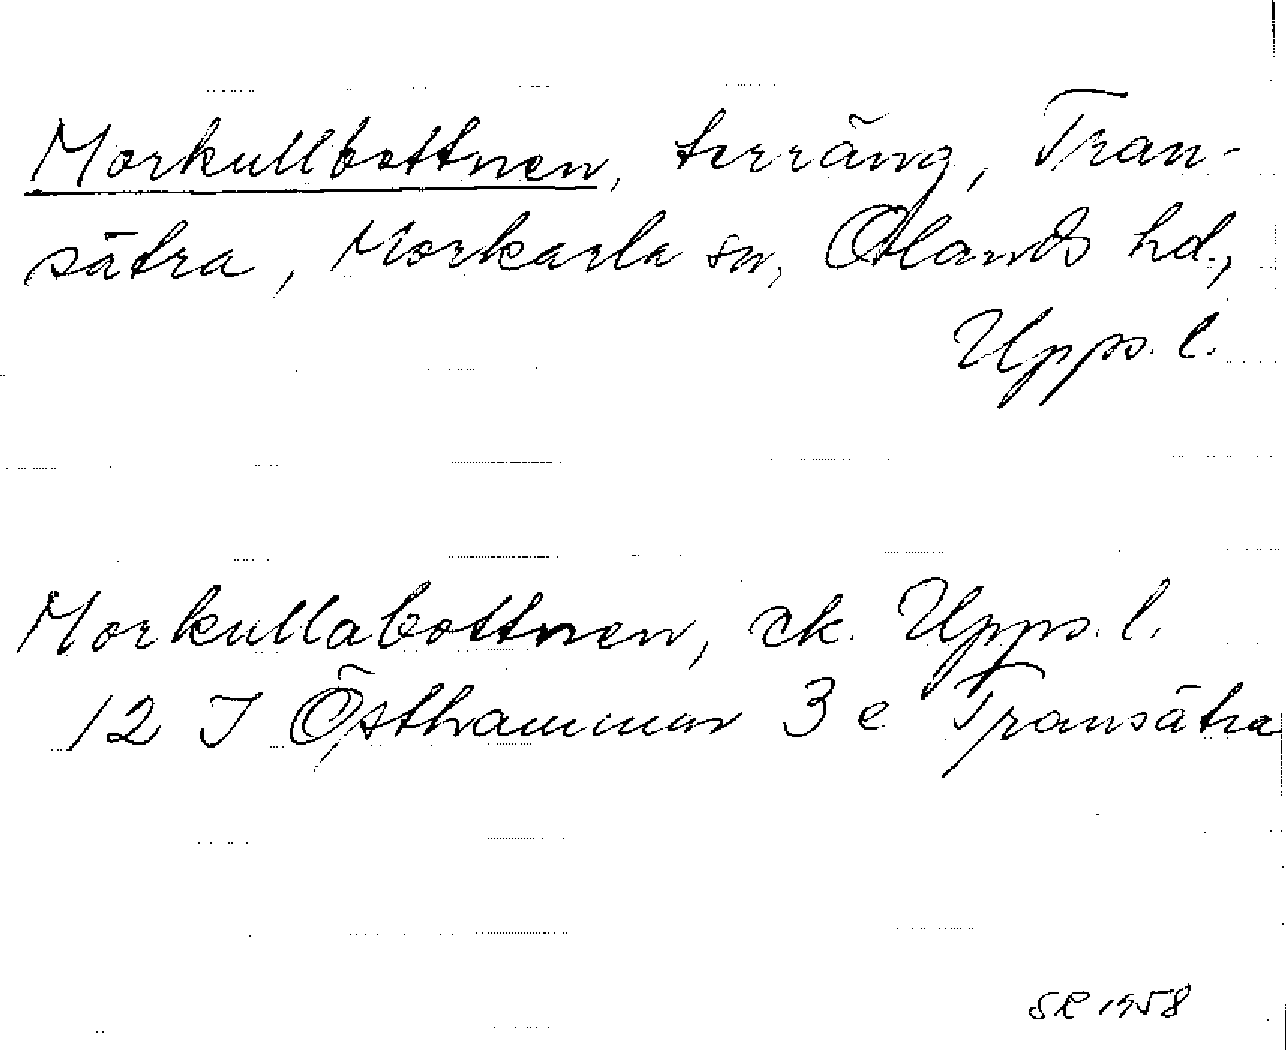 Morkullbottnen, terräng, Tran-
sätra, Morkarla sn, Olands hd.,
Upps. l.
Morkullabottnen, ek. Upps. l.
12 I Östhammar 3 e Transätra
SR 1958